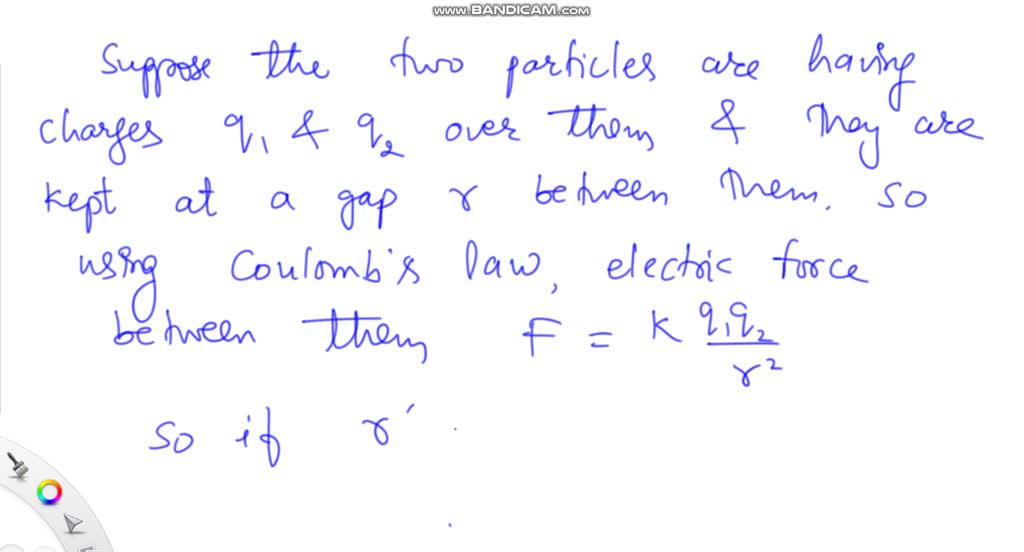 www.BANDICAM.com
Suppose the two particles are having
charges q₁ & q₂ over them & they are
kept at a gap r between them. so
using Coulomb's law, electric force
between them, F = K q₁q₂/r²
so if r'